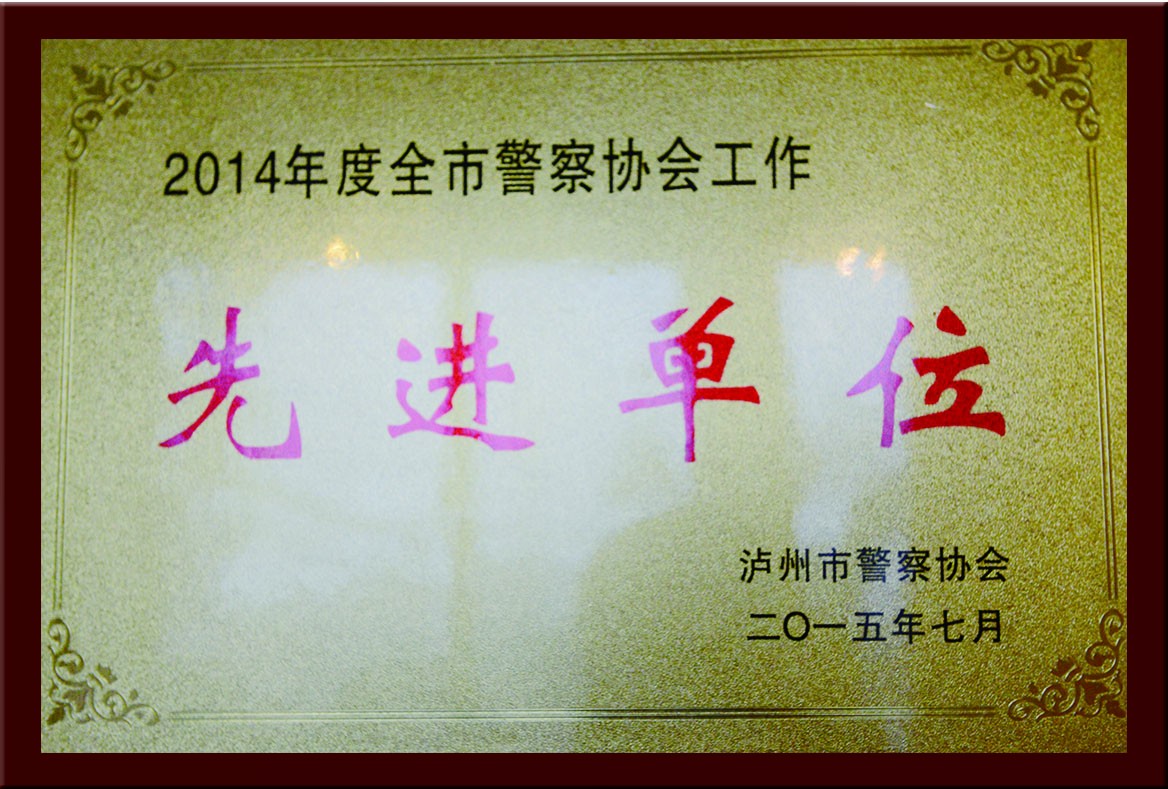 2014年度全市警察协会工作
先进单位
泸州市警察协会
二〇一五年七月